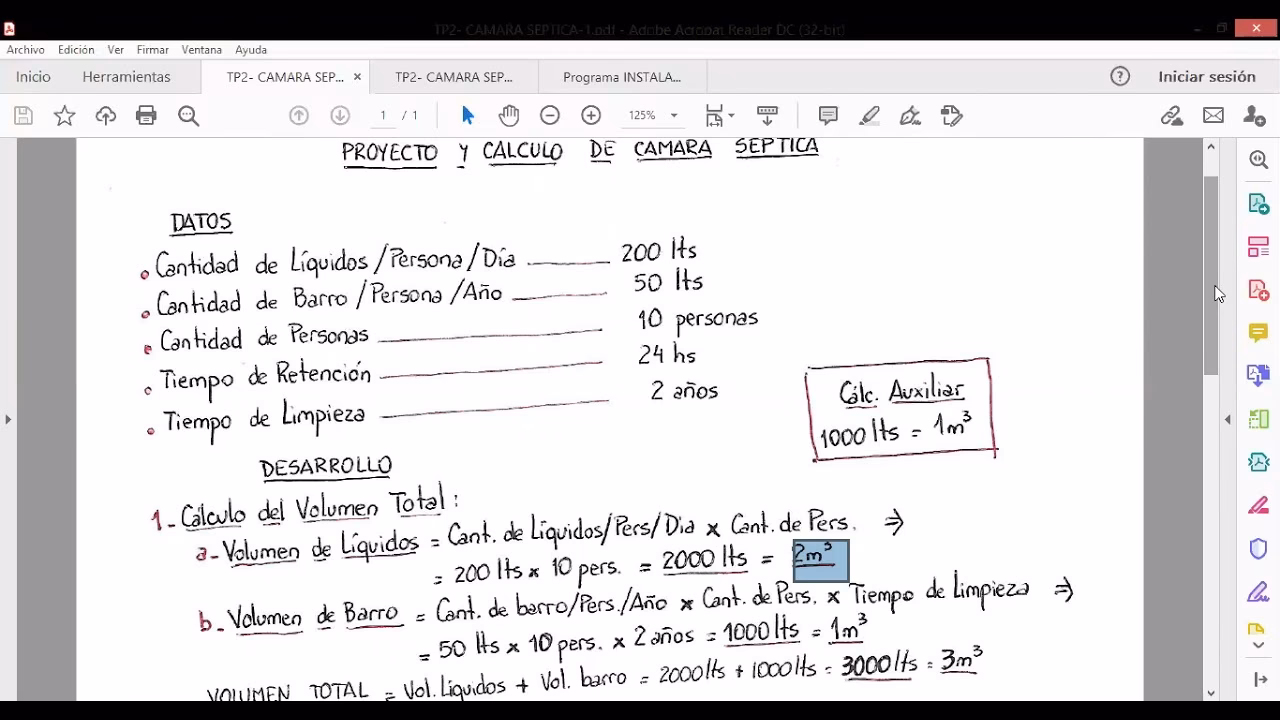 TP2- CAMARA SEPTICA-1.pdf - Adobe Acrobat Reader DC (32-bit)
Archivo Edición Ver Firmar Ventana Ayuda
Inicio Herramientas TP2- CAMARA SEP... × TP2- CAMARA SEP... Programa INSTALA... Iniciar sesión
1 / 1 125%
PROYECTO Y CALCULO DE CAMARA SEPTICA
DATOS
• Cantidad de Líquidos/Persona/Día 200 lts
• Cantidad de Barro/Persona/Año 50 lts
• Cantidad de Personas 10 personas
• Tiempo de Retención 24 hs
• Tiempo de Limpieza 2 años
Cálc. Auxiliar
1000 lts = 1m³
DESARROLLO
1- Cálculo del Volumen Total:
a- Volumen de Líquidos = Cant. de Líquidos/Pers/Dia × Cant. de Pers. ⇒
= 200 lts × 10 pers. = 2000 lts = 2m³
b- Volumen de Barro = Cant. de barro/Pers./Año × Cant. de Pers. × Tiempo de Limpieza ⇒
= 50 lts × 10 pers. × 2 años = 1000 lts = 1m³
VOLUMEN TOTAL = Vol. Líquidos + Vol. barro = 2000 lts + 1000 lts = 3000 lts = 3m³